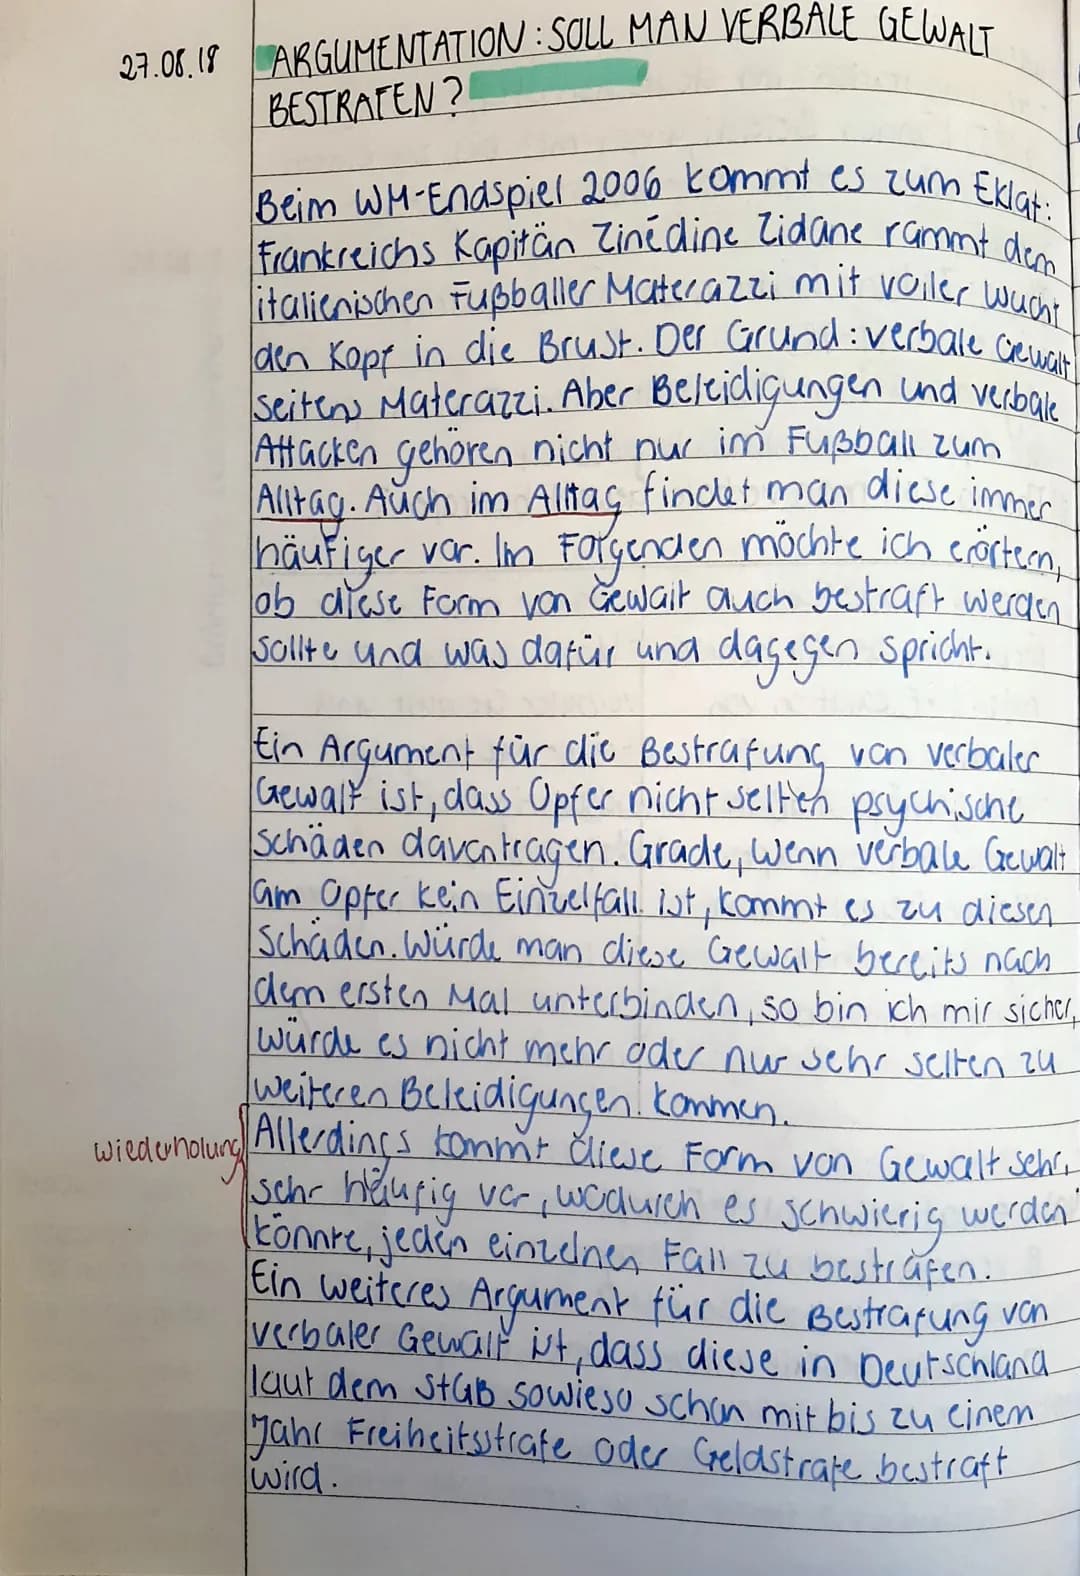 27.08.18
ARGUMENTATION: SOLL MAN VERBALE GEWALT
BESTRAFEN?
Beim WM-Endspiel 2006 kommt es zum Eklat:
Frankreichs Kapitän Zinédine Zidane rammt dem
italienischen Fußballer Materazzi mit voller Wucht
den Kopf in die Brust. Der Grund: verbale Gewalt
seitens Materazzi. Aber Beleidigungen und verbale
Attacken gehören nicht nur im Fußball zum
Alltag. Auch im Alltag findet man diese immer
häufiger vor. Im Folgenden möchte ich erörtern,
ob diese Form von Gewalt auch bestraft werden
sollte und was dafür und dagegen spricht.
Ein Argument für die Bestrafung von verbaler
Gewalt ist, dass Opfer nicht selten psychische
Schäden davontragen. Grade, wenn verbale Gewalt
am Opfer kein Einzelfall ist, kommt es zu diesen
Schäden. Würde man diese Gewalt bereits nach
dem ersten Mal unterbinden, so bin ich mir sicher,
würde es nicht mehr oder nur sehr selten zu
weiteren Beleidigungen kommen.
wiederholung
Allerdings kommt diese Form von Gewalt sehr,
sehr häufig vor, wodurch es schwierig werden
könnte, jeden einzelnen Fall zu bestrafen.
Ein weiteres Argument für die Bestrafung von
verbaler Gewalt ist, dass diese in Deutschland
laut dem StGB sowieso schon mit bis zu einem
Jahr Freiheitsstrafe oder Geldstrafe bestraft
wird.